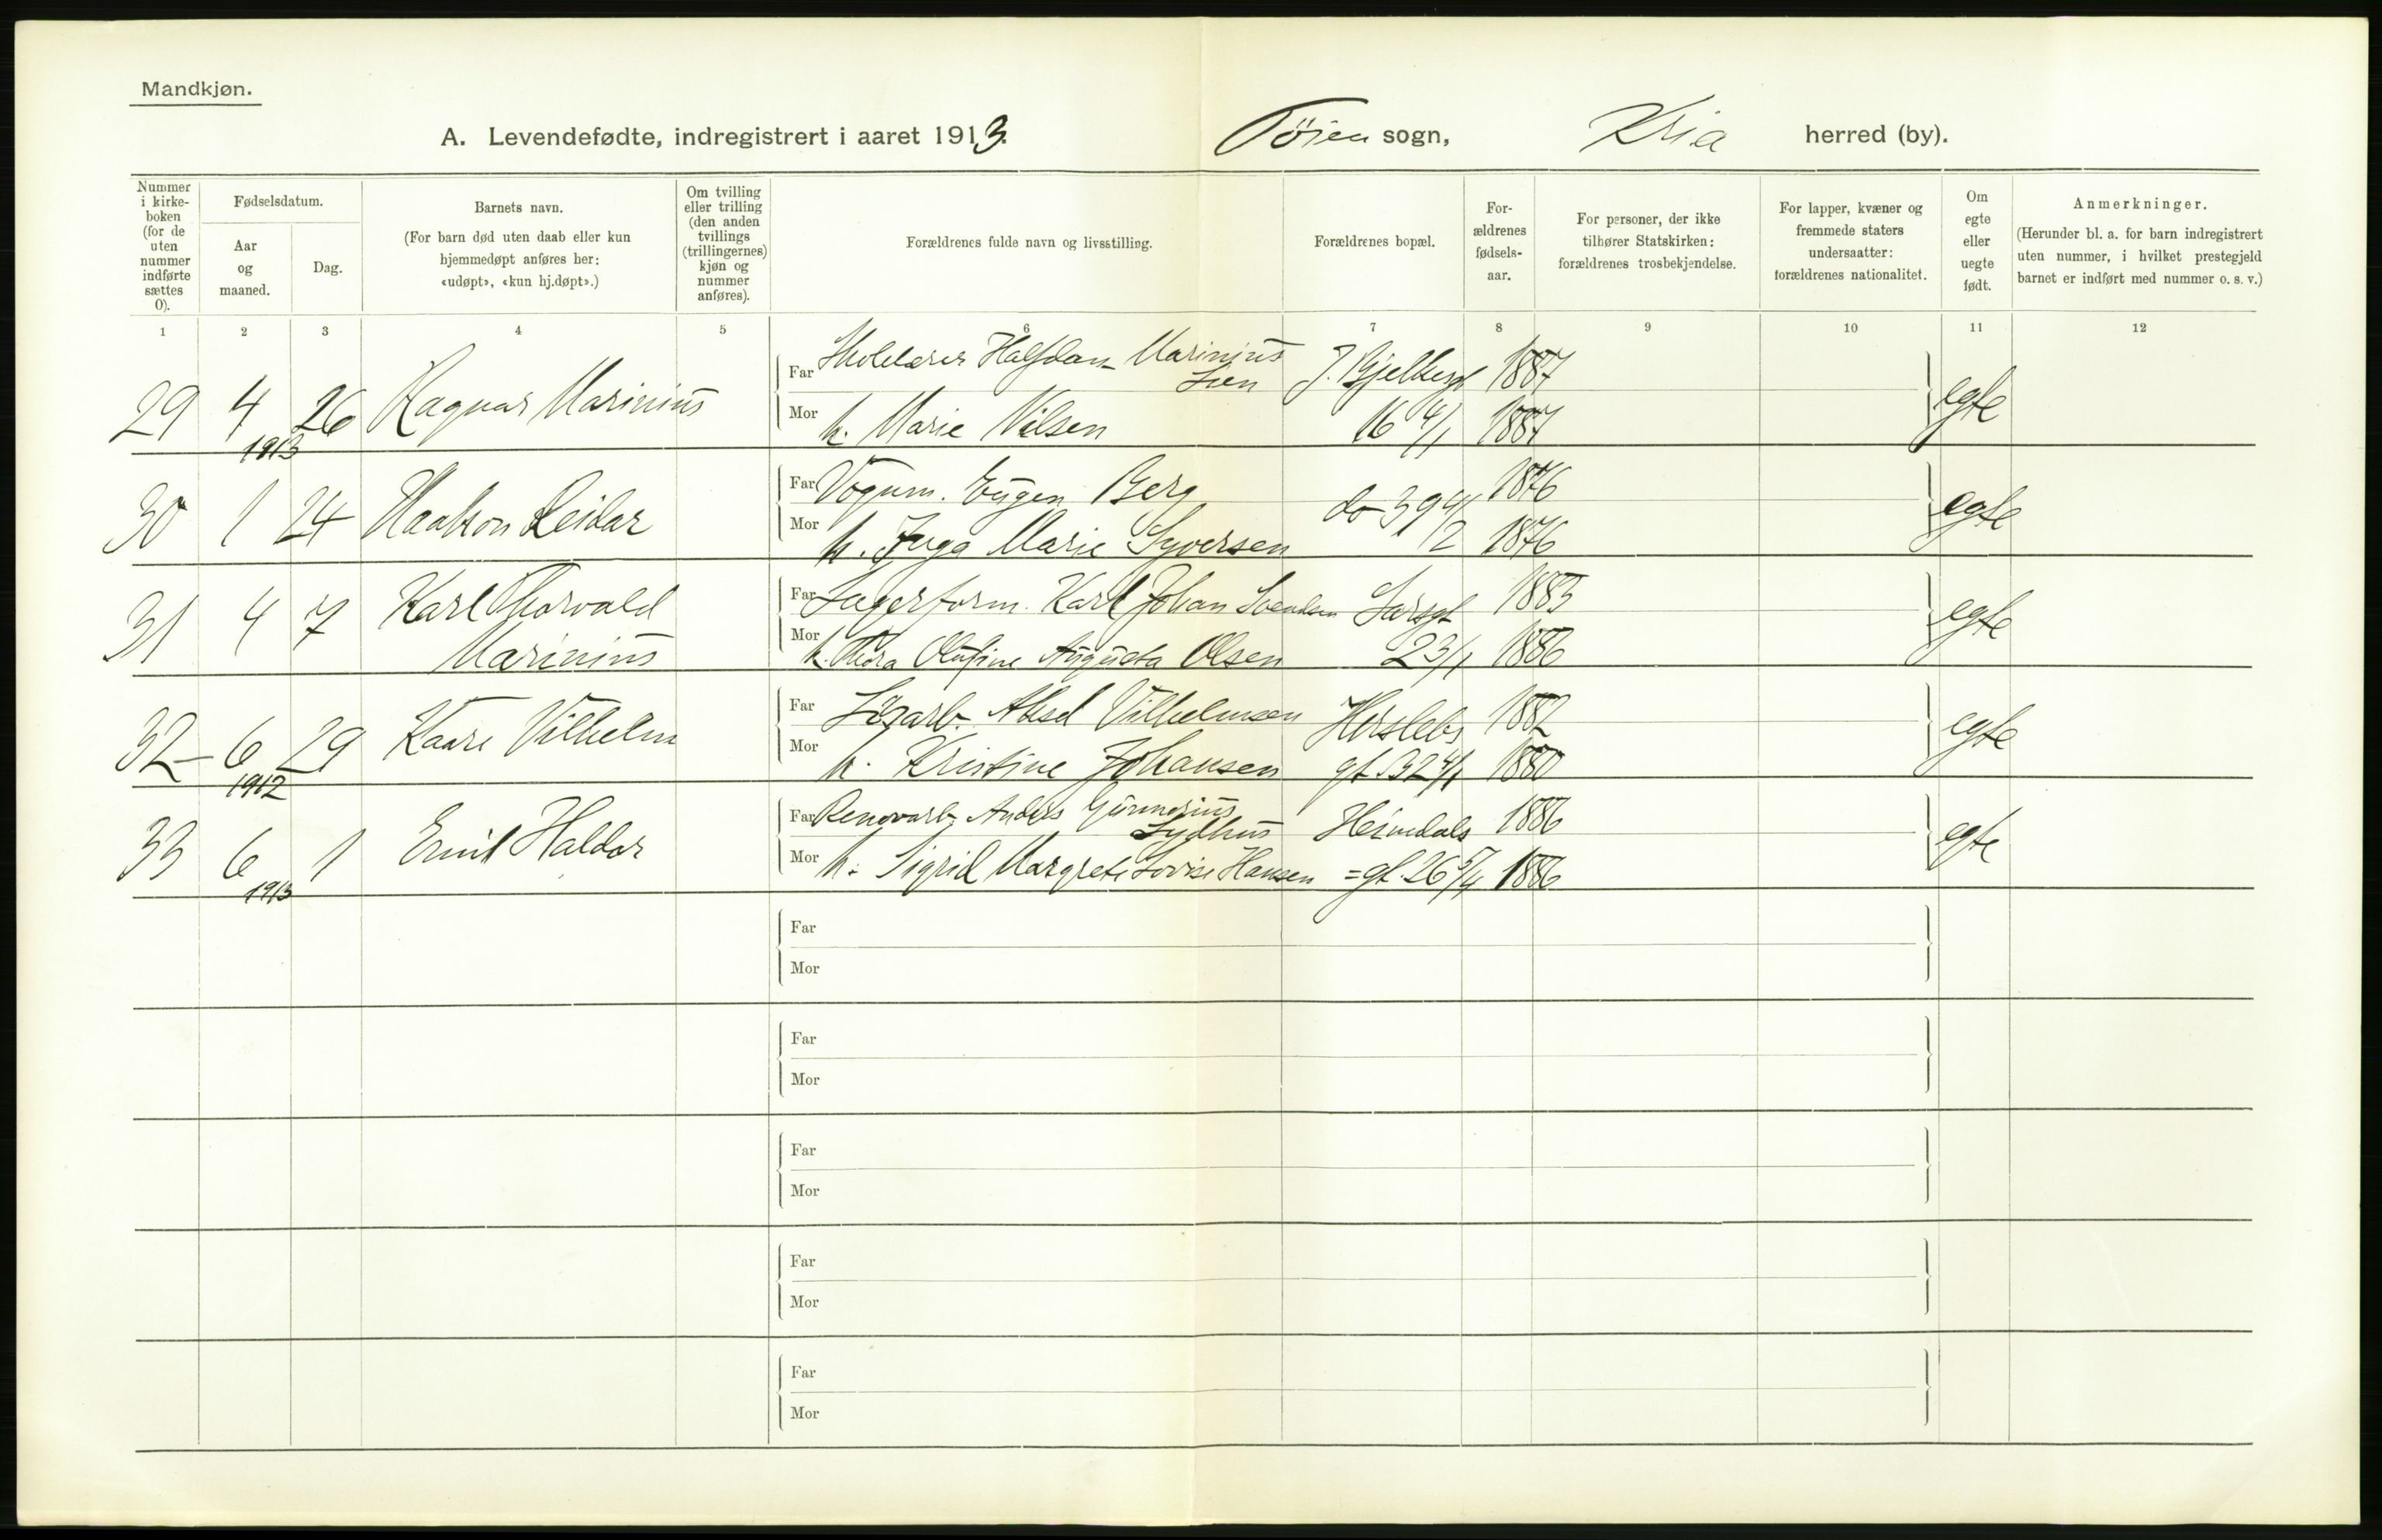 Mandkjøn.
A. Levendefødte, indregistrert i aaret 1913. Töien sogn, Kria herred (by).
Nummer i kirke-boken (for de uten nummer indførte sættes 0).
Fødselsdatum.
Aar og maaned.
Dag.
Barnets navn.
(For barn død uten daab eller kun hjemmedøpt anføres her: «udøpt», «kun hj.døpt».)
Om tvilling eller trilling (den anden tvillings (trillingernes) kjøn og nummer anføres).
Forældrenes fulde navn og livsstilling.
Forældrenes bopæl.
For-ældrenes fødsels-aar.
For personer, der ikke tilhører Statskirken: forældrenes trosbekjendelse.
For lapper, kvæner og fremmede staters undersaatter: forældrenes nationalitet.
Om egte eller uegte født.
Anmerkninger.
(Herunder bl. a. for barn indregistrert uten nummer, i hvilket prestegjeld barnet er indført med nummer o. s. v.)
1 2 3 4 5 6 7 8 9 10 11 12
29 4 1913 26 Ragnar Marinius
Far Skolelærer Halfdan Marinius Lien 1887
Mor h. Marie Nilsen 16 4/1 1887
egte
30 1 24 Haakon Reidar
Far Vognm. Eugen Berg do 39 4/2 1876
Mor h. Inga Marie Syversen 1876
egte
31 4 7 Karl Thorvald Marinius
Far Lagerform. Karl Johan Svendsen Larsgt 1883
Mor h. Thora Olufine Augusta Olsen 23/1 1886
egte
32 6 1912 29 Kaare Vilhelm
Far Aksel Vilhelmsen Herslebs 1882
Mor h. Kristine Johansen gt. 32 4/1 1880
egte
33 6 1913 1 Emil Haldor
Far Renovarb. Anders Gunnerius Lydhus Heimdals 1886
Mor h: Sigrid Margrete Lovise Hansen =gt. 26 5/4 1886
egte
Far
Mor
Far
Mor
Far
Mor
Far
Mor
Far
Mor